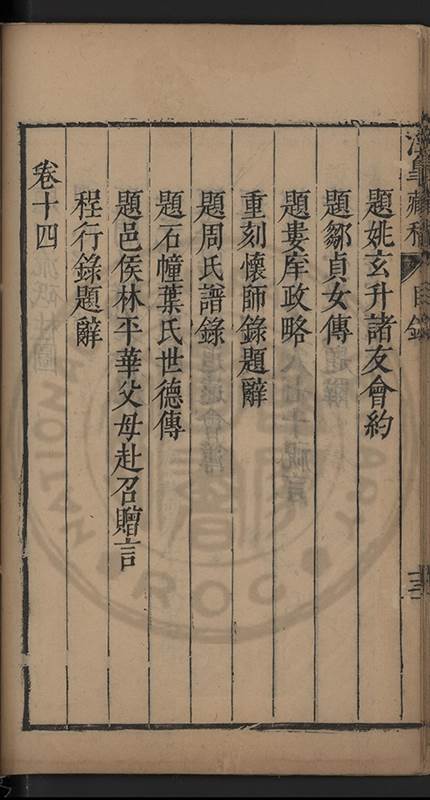 題姚玄升諸友會約
題鄒貞女傳
題婁庠政略
重刻懷師錄題辭
題周氏譜錄
題石幢葉氏世德傳
題邑侯林平華父母赴召贈言
程行錄題辭
卷十四